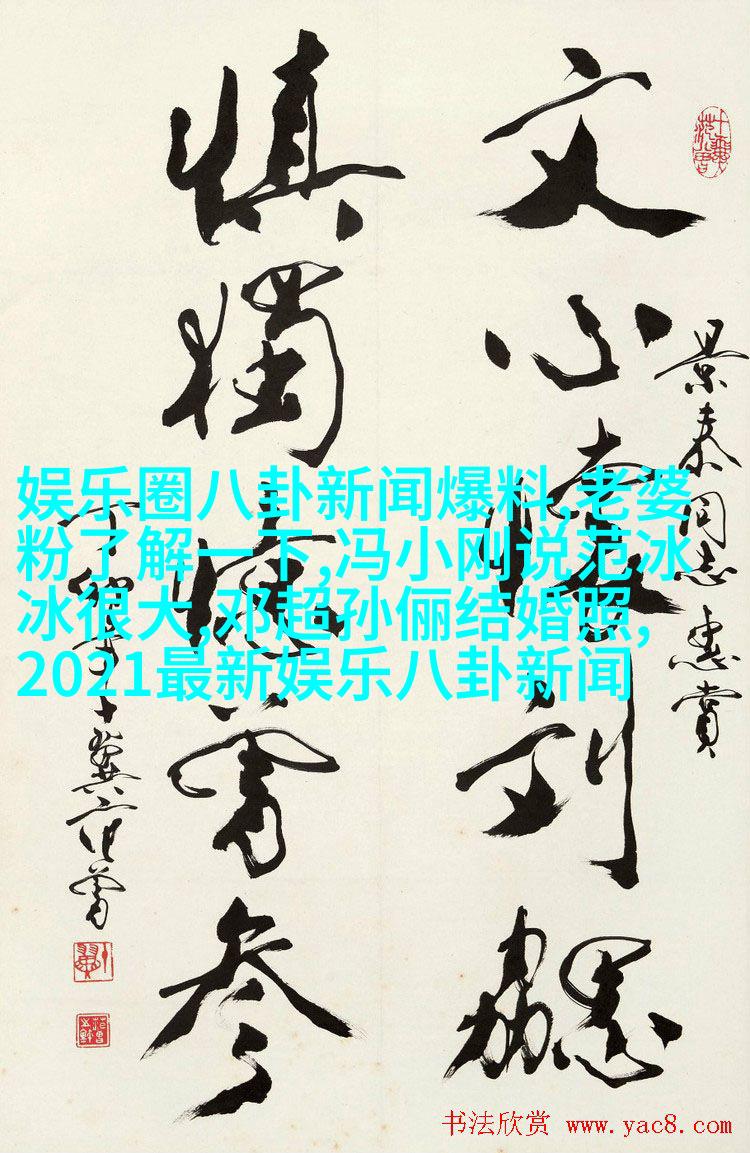 景泰同志惠賞
文心懷刘勰
慎獨憶曾參
十翼范曾
娱乐圈八卦新闻爆料,老婆
粉了解一下,冯小刚说范冰
冰很大,邓超孙俪结婚照,
2021最新娱乐八卦新闻
书法欣赏 www.yac8.com